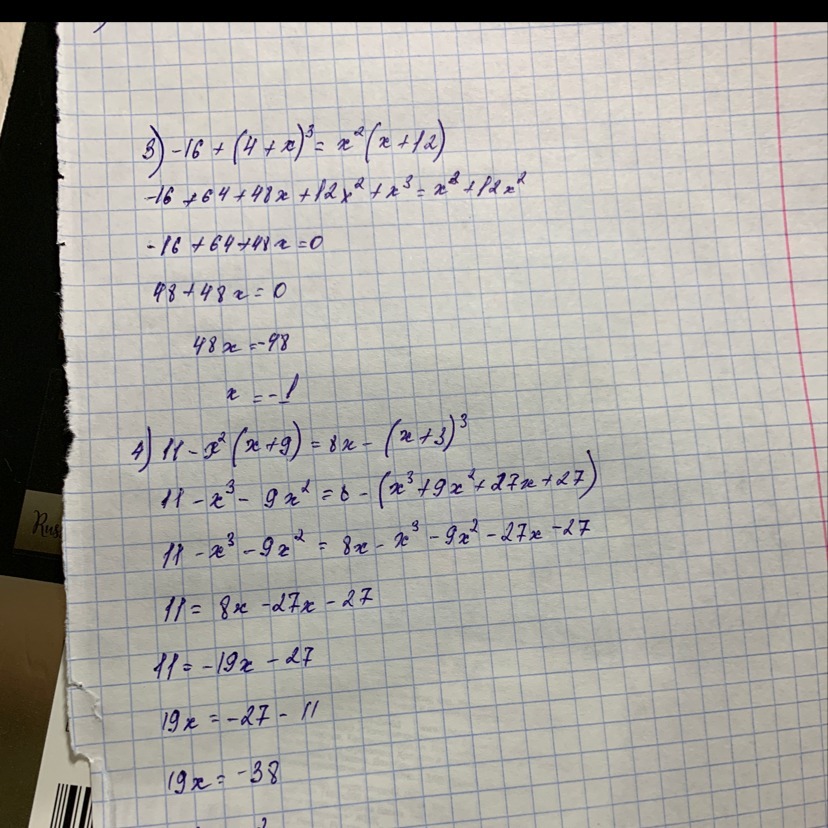 3) -16 + (4 + x)³ = x² (x + 12)
-16 + 64 + 48x + 12x² + x³ = x² + 12x²
-16 + 64 + 48x = 0
48 + 48x = 0
48x = -48
x = -1
4) 11 - x² (x + 9) = 8x - (x + 3)³
11 - x³ - 9x² = 8 - (x³ + 9x² + 27x + 27)
11 - x³ - 9x² = 8x - x³ - 9x² - 27x - 27
11 = 8x - 27x - 27
11 = -19x - 27
19x = -27 - 11
19x = -38
Rus